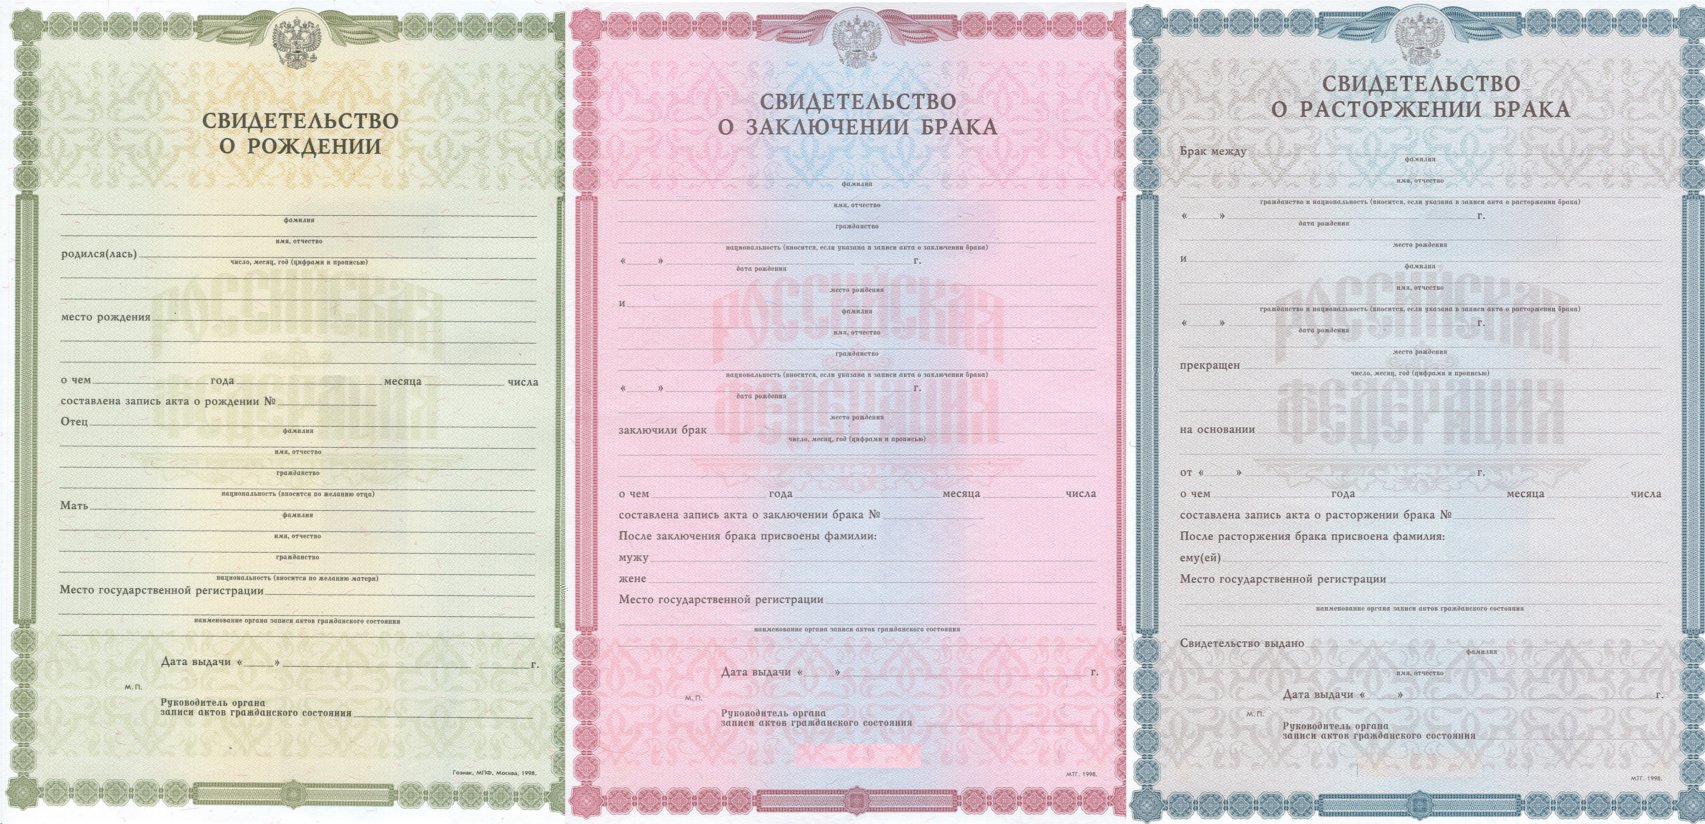 СВИДЕТЕЛЬСТВО
О РОЖДЕНИИ
фамилия
имя, отчество
родился(лась)
число, месяц, год (цифрами и прописью)
место рождения
о чем года месяца числа
составлена запись акта о рождении №
Отец
фамилия
имя, отчество
гражданство
национальность (вносится по желанию отца)
Мать
фамилия
имя, отчество
гражданство
национальность (вносится по желанию матери)
Место государственной регистрации
наименование органа записи актов гражданского состояния
Дата выдачи « » г.
М. П.
Руководитель органа
записи актов гражданского состояния
Гознак, МПФ, Москва, 1998.
РОССИЙСКАЯ
ФЕДЕРАЦИЯ
СВИДЕТЕЛЬСТВО
О ЗАКЛЮЧЕНИИ БРАКА
фамилия
имя, отчество
гражданство
национальность (вносится, если указана в записи акта о заключении брака)
« » г.
дата рождения
место рождения
и
фамилия
имя, отчество
гражданство
национальность (вносится, если указана в записи акта о заключении брака)
« » г.
дата рождения
место рождения
заключили брак
число, месяц, год (цифрами и прописью)
о чем года месяца числа
составлена запись акта о заключении брака №
После заключения брака присвоены фамилии:
мужу
жене
Место государственной регистрации
наименование органа записи актов гражданского состояния
Дата выдачи « » г.
М. П.
Руководитель органа
записи актов гражданского состояния
МТГ. 1998.
РОССИЙСКАЯ
ФЕДЕРАЦИЯ
СВИДЕТЕЛЬСТВО
О РАСТОРЖЕНИИ БРАКА
Брак между
фамилия
имя, отчество
гражданство и национальность (вносится, если указана в записи акта о расторжении брака)
« » г.
дата рождения
место рождения
и
фамилия
имя, отчество
гражданство и национальность (вносится, если указана в записи акта о расторжении брака)
« » г.
дата рождения
место рождения
прекращен
число, месяц, год (цифрами и прописью)
на основании
от « » г.
о чем года месяца числа
составлена запись акта о расторжении брака №
После расторжения брака присвоена фамилия:
ему(ей)
Место государственной регистрации
наименование органа записи актов гражданского состояния
Свидетельство выдано
фамилия
имя, отчество
Дата выдачи « » г.
М. П.
Руководитель органа
записи актов гражданского состояния
МТГ. 1998.
РОССИЙСКАЯ
ФЕДЕРАЦИЯ